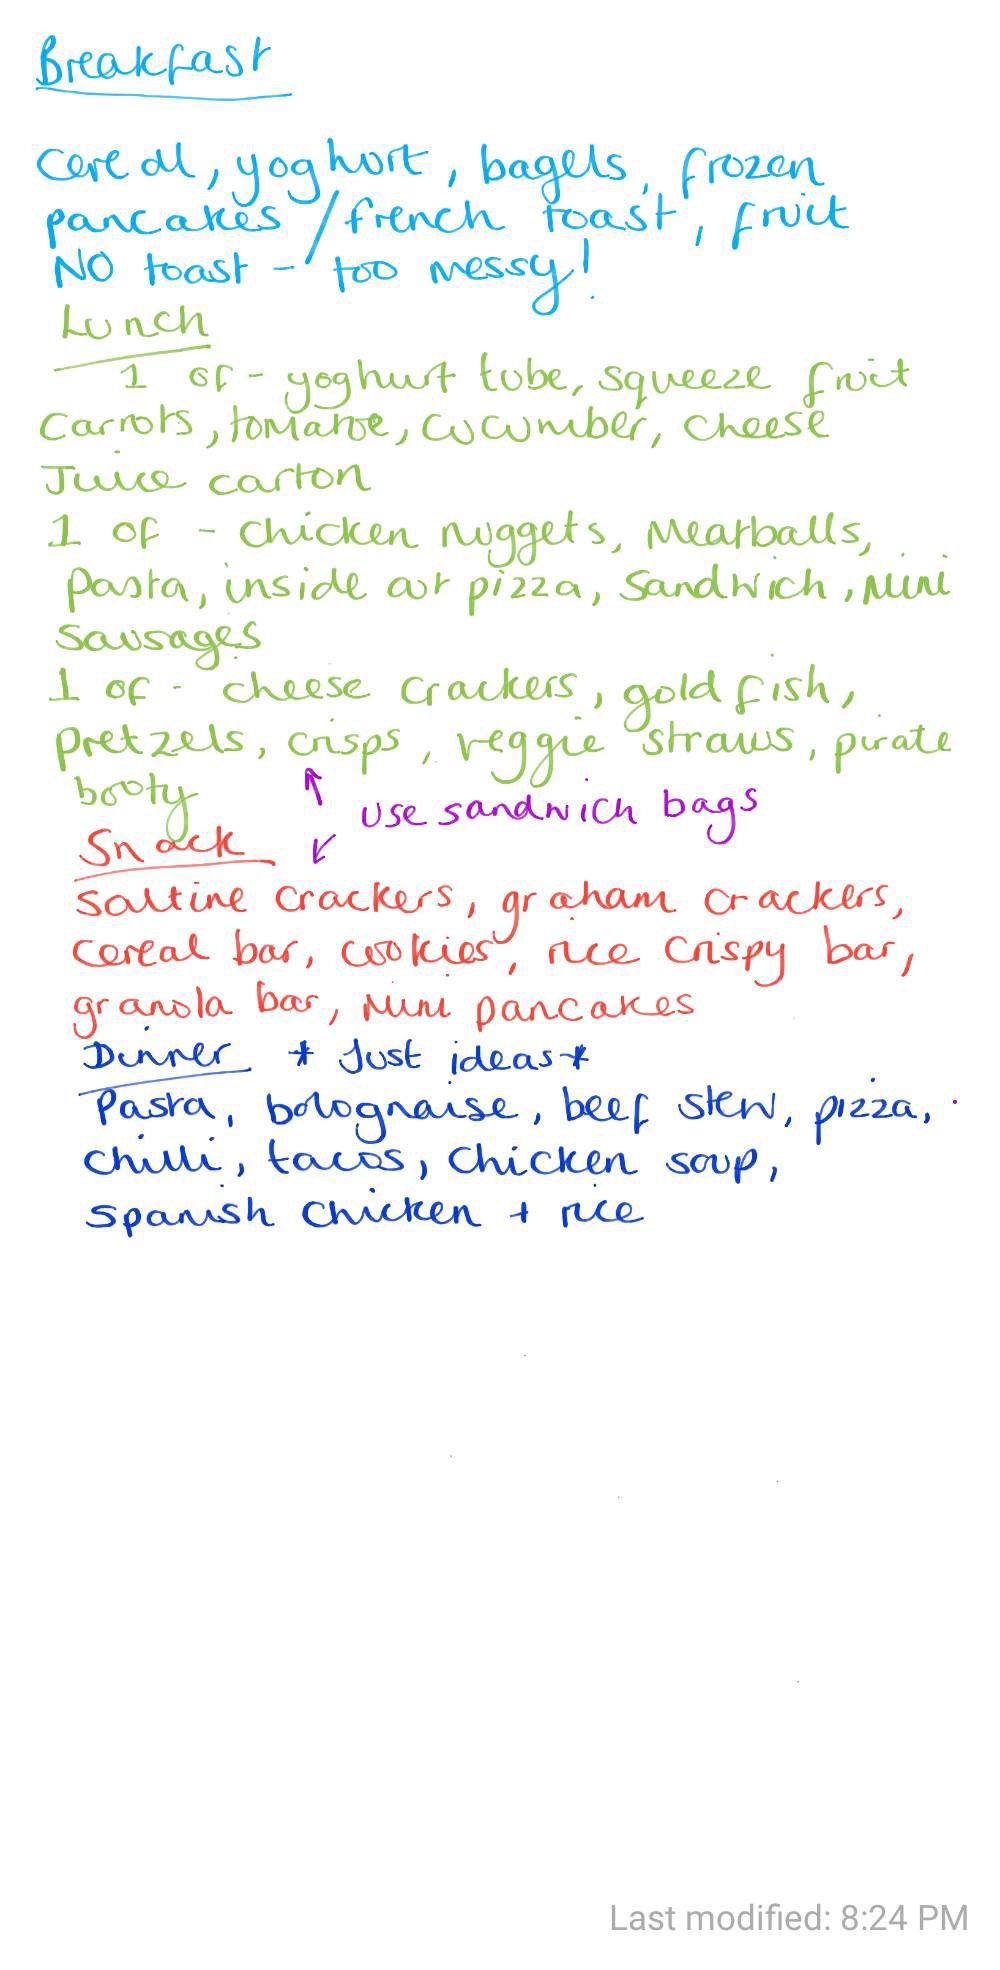 Breakfast
Cereal, yoghurt, bagels, frozen
pancakes / french toast, fruit
NO toast - too messy!
Lunch
1 of - yoghurt tube, squeeze fruit
Carrots, tomatoe, cucumber, cheese
Juice carton
1 of - chicken nuggets, Meatballs,
Pasta, inside out pizza, Sandwich, Mini
Sausages
1 of - cheese crackers, gold fish,
Pretzels, crisps, veggie straws, pirate
booty
use sandwich bags
Snack
Saltine crackers, graham crackers,
Cereal bar, cookies, rice crispy bar,
granola bar, Mini pancakes
Dinner * Just ideas *
Pasta, bolognaise, beef stew, pizza,
Chilli, tacos, Chicken soup,
Spanish Chicken + rice
Last modified: 8:24 PM